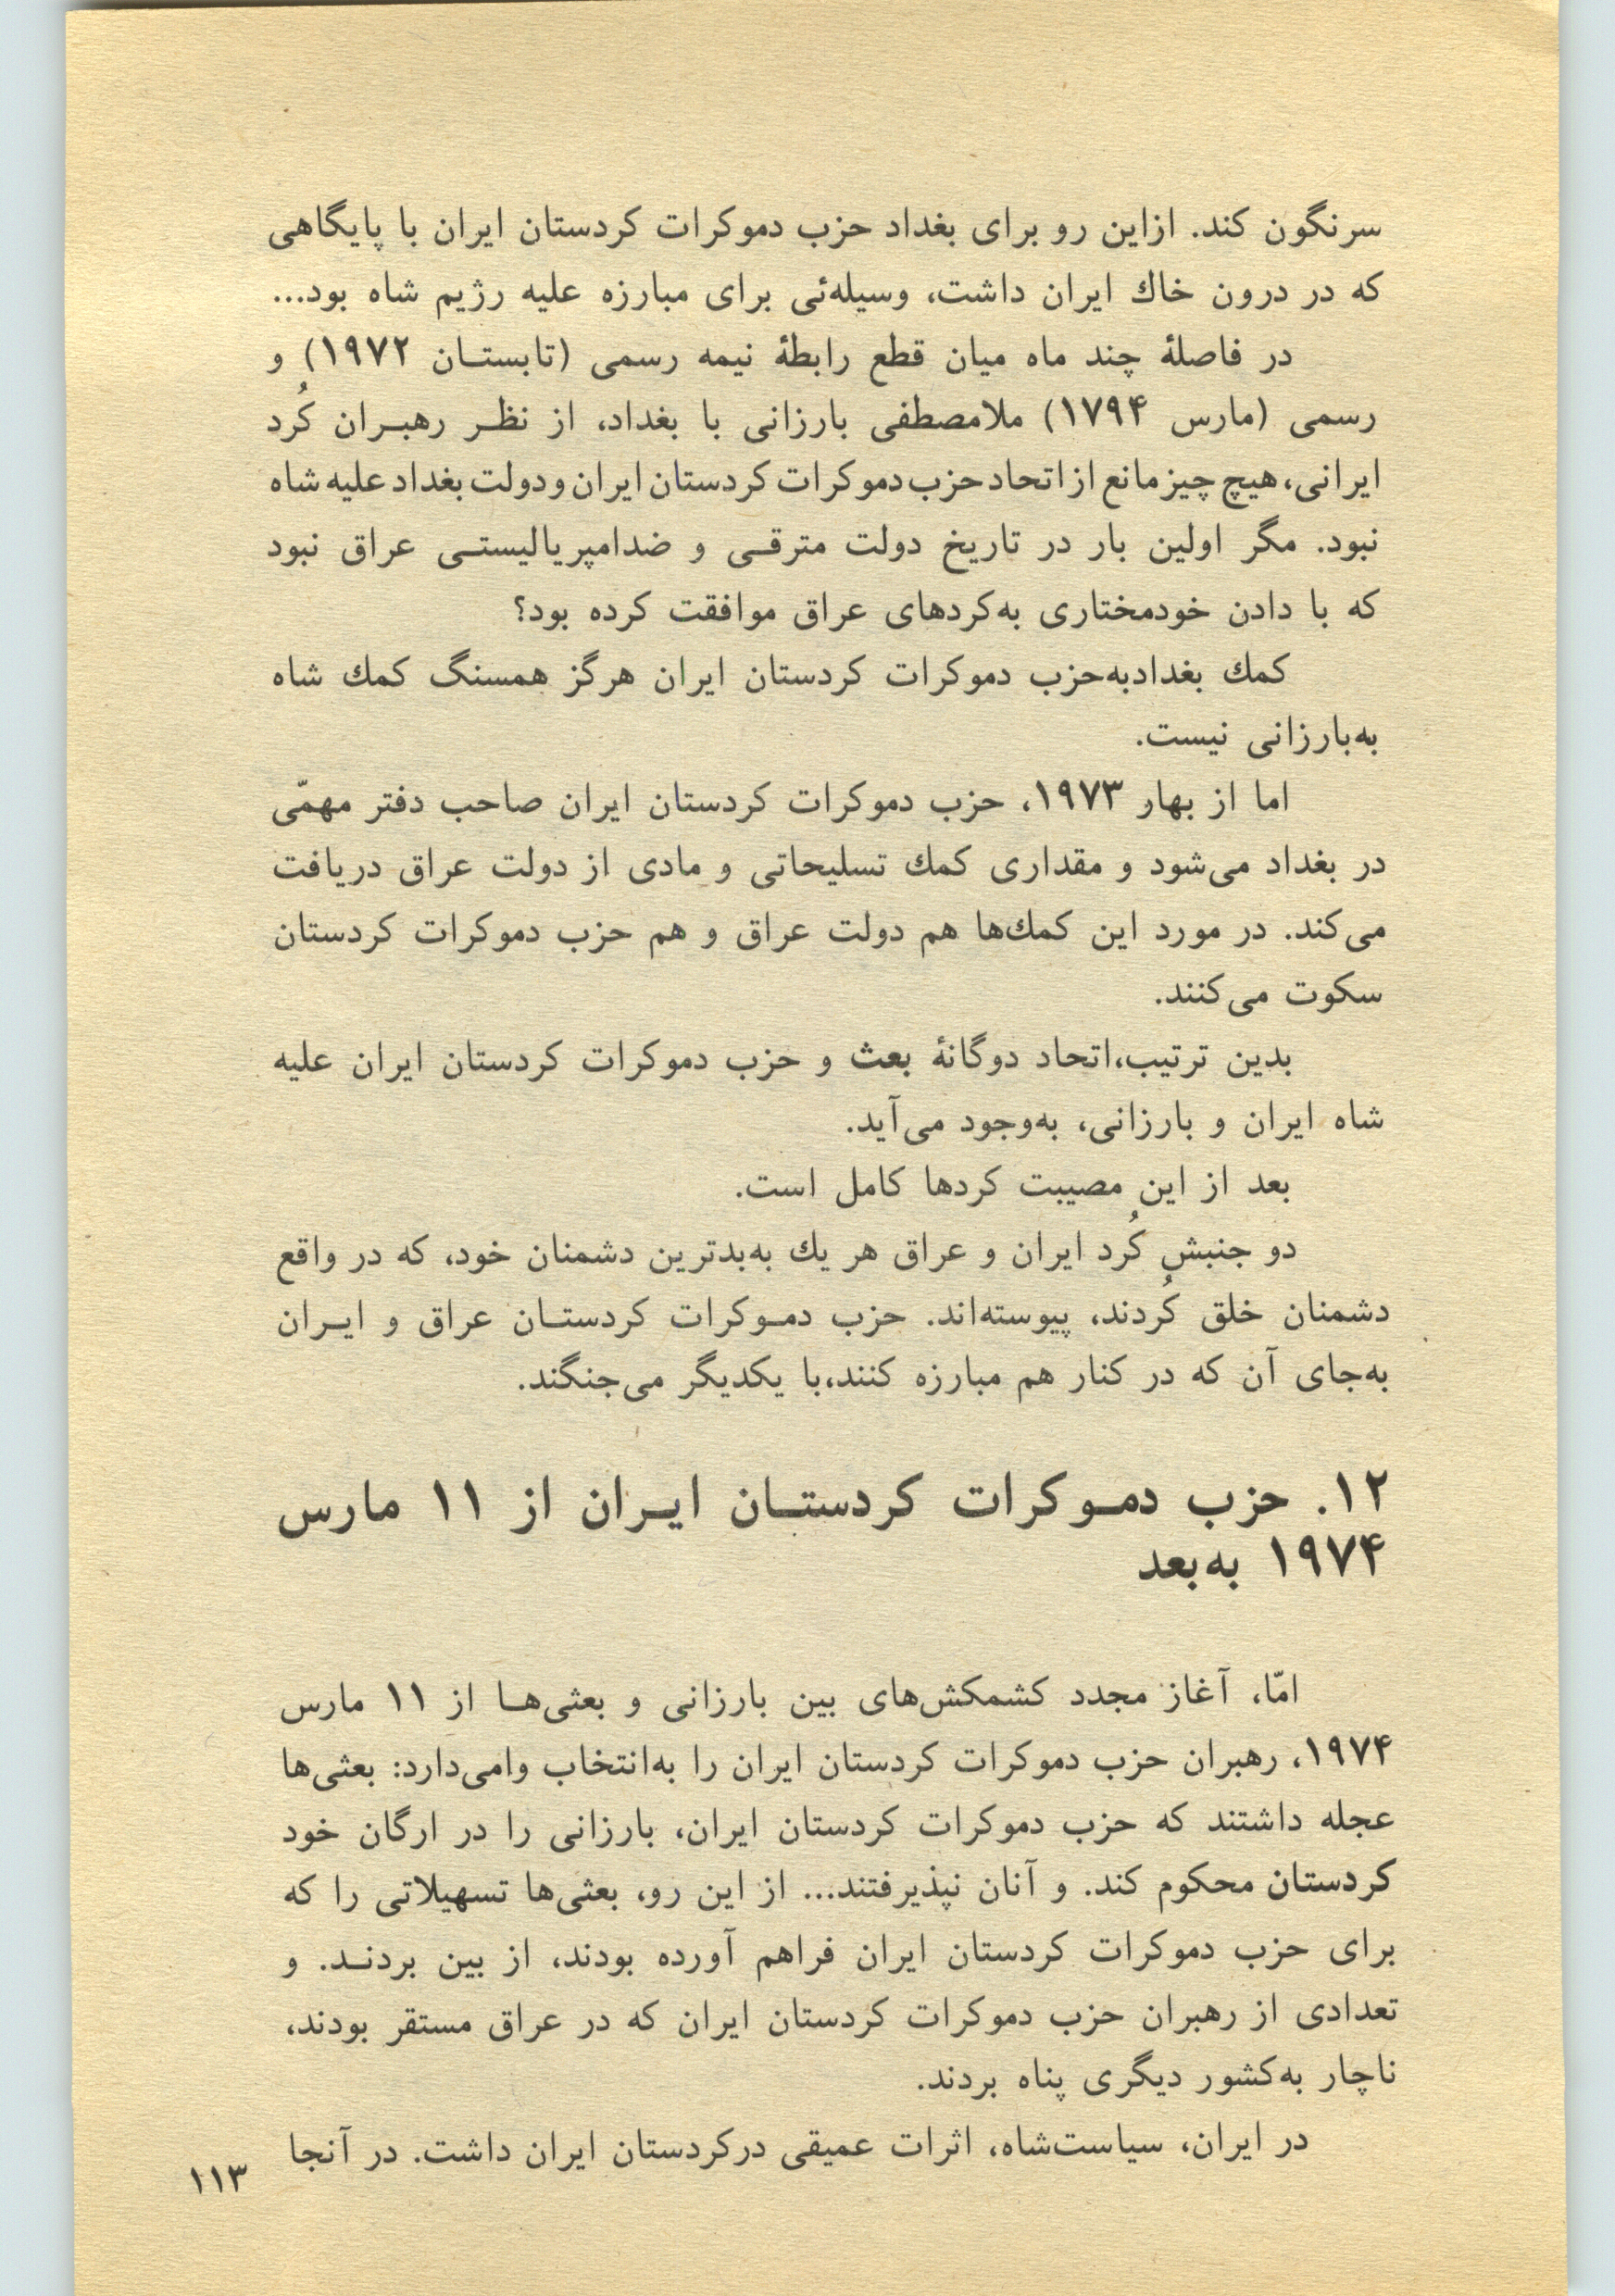 سرنگون کند. ازاین رو برای بغداد حزب دموکرات کردستان ایران با پایگاهی
که در درون خاك ایران داشت، وسیله‌ئی برای مبارزه علیه رژیم شاه بود...
در فاصلهٔ چند ماه میان قطع رابطهٔ نیمه رسمی (تابستـان ۱۹۷۲) و
رسمی (مارس ۱۷۹۴) ملامصطفی بارزانی با بغداد، از نظـر رهبـران کُرد
ایرانی، هیچ چیز مانع از اتحاد حزب دموکرات کردستان ایران و دولت بغداد علیه شاه
نبود. مگر اولین بار در تاریخ دولت مترقـی و ضدامپریالیستـی عراق نبود
که با دادن خودمختاری به‌کردهای عراق موافقت کرده بود؟
کمك بغدادبه‌حزب دموکرات کردستان ایران هرگز همسنگ کمك شاه
به‌بارزانی نیست.
اما از بهار ۱۹۷۳، حزب دموکرات کردستان ایران صاحب دفتر مهمّی
در بغداد می‌شود و مقداری کمك تسلیحاتی و مادی از دولت عراق دریافت
می‌کند. در مورد این کمك‌ها هم دولت عراق و هم حزب دموکرات کردستان
سکوت می‌کنند.
بدین ترتیب،اتحاد دوگانهٔ بعث و حزب دموکرات کردستان ایران علیه
شاه ایران و بارزانی، به‌وجود می‌آید.
بعد از این مصیبت کردها کامل است.
دو جنبش کُرد ایران و عراق هر یك به‌بدترین دشمنان خود، که در واقع
دشمنان خلق کُردند، پیوسته‌اند. حزب دمـوکرات کردستـان عراق و ایـران
به‌جای آن که در کنار هم مبارزه کنند،با یکدیگر می‌جنگند.
۱۲. حزب دمـوکرات کردستـان ایـران از ۱۱ مارس
۱۹۷۴ به‌بعد
امّا، آغاز مجدد کشمکش‌های بین بارزانی و بعثی‌هـا از ۱۱ مارس
۱۹۷۴، رهبران حزب دموکرات کردستان ایران را به‌انتخاب وامی‌دارد: بعثی‌ها
عجله داشتند که حزب دموکرات کردستان ایران، بارزانی را در ارگان خود
کردستان محکوم کند. و آنان نپذیرفتند... از این رو، بعثی‌ها تسهیلاتی را که
برای حزب دموکرات کردستان ایران فراهم آورده بودند، از بین بردنـد. و
تعدادی از رهبران حزب دموکرات کردستان ایران که در عراق مستقر بودند،
ناچار به‌کشور دیگری پناه بردند.
در ایران، سیاست‌شاه، اثرات عمیقی درکردستان ایران داشت. در آنجا
۱۱۳